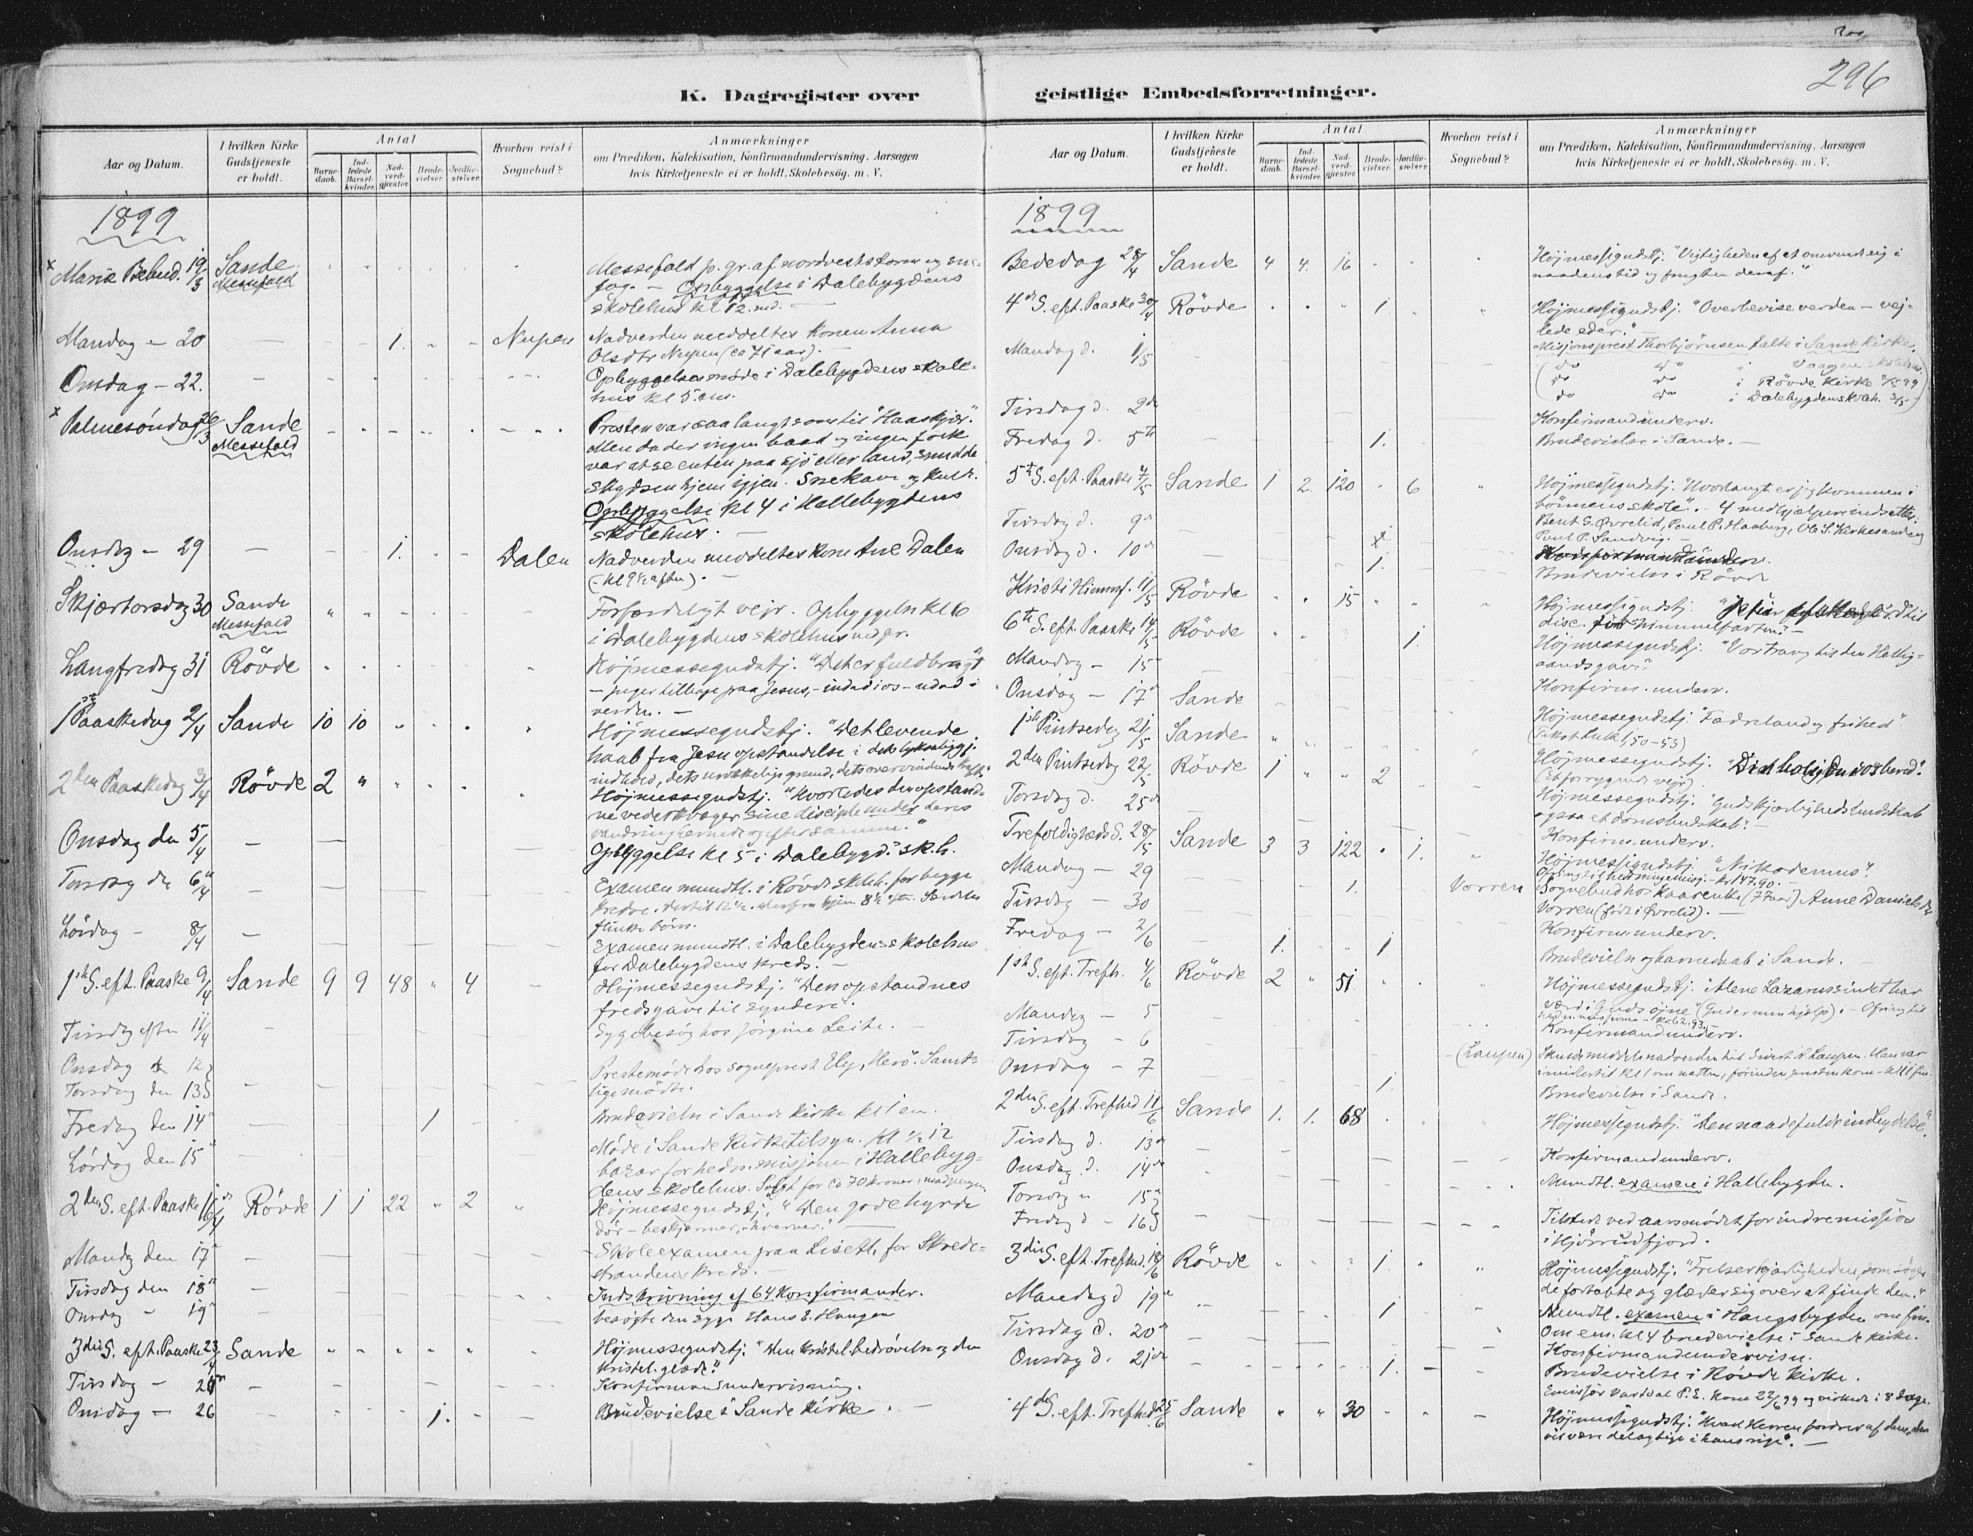 296
K. Dagregister over geistlige Embedsforretninger.
Aar og Datum.
I hvilken Kirke Gudstjeneste er holdt.
Antal
Barnedaab.
Indledede Barselkvinder.
Nadverdgjester.
Brudevielser.
Jordfæstelser.
Hvorhen reist i Sognebud?
Anmærkninger
om Prædiken, Katekisation, Konfirmandundervisning. Aarsagen
hvis Kirketjeneste ei er holdt, Skolebesøg. m. V.
1899
Mariæ Bebud. 19/3 Sande Messefald Messefald p. gr. af nordveststorm og
Opbyggelse i Dalebygdens
skolehus kl 12. md.
Mandag – 20 1. Nupen Nadverden meddeltes konen Anna
Olsdtr Nupen (ca 71 aar). –
Onsdag – 22. Opbyggelsesmøde i Dalebygdens skole-
hus kl 5 em.
Palmesöndag 26/3 Sande Messefald Presten var saa langt som til "Haaskjær".
Men da der ingen baad og ingen folk
var at se enten paa sjö eller land,
skydsen hjem igjen. Snekave og
Opbyggelse kl 4 i Hallebygdens
skolehus. –
Onsdag – 29 1. Dalen Nadverden meddeltes kone Ane Dalen
(kl 9½ aften). –
Skjærtorsdag 30 Sande Messefald Forfærdeligt vejr. Opbyggelse kl 6
i Dalebygdens skolehus
Langfredag 31 Rövde Højmessegudstj. "Det er fuldbragt"
– peger tilbage paa Jesus, – ind ad i os – ud ad i
verden. –
1st Paaskedag 2/4 Sande 10 10 Højmessegudstj. "Det levende
haab fra Jesu opstandelse i
indhold, dets
2den Paaskedag 3/4 Rövde 2 " Højmessegudstj. "Hvorledes den opstand-
ne vederkvæger sine disciple under deres
vandring hernede og efter
Onsdag den 5/4 Opbyggelse kl 5 i Dalebygd. sk.h.
Torsdag den 6/4 Examen mundtl. i Rövde skoleh. for begge
kredse.
flinke börn.
Lördag – 8/4 Examen mundtl. i Dalebygdens skolehus
for Dalebygdens kreds. –
1st S. eft. Paaske 9/4 Sande 9 9 48 " 4 Højmessegudstj. "Den opstandnes
fredsgave til syndere".
Tirsdag efter 11/4 Sygebesøg hos Jörgine Leite.
Onsdag 12
Torsdag den 13 Prestemöde hos sogneprest Ely, Herö.
Fredag den 14 1 Brudevielse i Sande kirke kl 1 em.
Lördag den 15 Möde i Sande kirketilsyn. Kl ½ 12
bazar for hedn. misjonen i Hallebyg-
dens skolehus. Solgt for ca 70 kroner
2den S. eft. Paaske 16/4 Rövde 1 1 22 " 2 Højmessegudstj. "Den gode hyrde
dör – beskjermer, – kverver." –
Mandag den 17 Skoleexamen paa Lisett, for Skrede-
strandens kreds. –
Tirsdag den 18 Indskrivning af 64 konfirmander.
Onsdag – 19 besøgte den syge Hans E. Haugen
3die S. eft. Paaske 23/4 Sande Højmessegudstj. "Den kristel. bedrövelse og den
kristel. glæde."
Tirsdag – Konfirmandundervisning.
Onsdag – 26 1. Brudevielse i Sande kirke. –
Aar og Datum.
I hvilken Kirke Gudstjeneste er holdt.
Antal
Barnedaab.
Indledede Barselkvinder.
Nadverdgjester.
Brudevielser.
Jordfæstelser.
Hvorhen reist i Sognebud?
Anmærkninger
om Prædiken, Katekisation, Konfirmandundervisning, Aarsagen
hvis Kirketjeneste ei er holdt, Skolebesøg. m. V.
1899
Bededag 28/4 Sande 4 4. 16 Højmessegudstj. "Vigtigheden af at omvende sig i
naadens tid og frugten deraf."
4de S. eft. Paaske 30/4 Rövde 1. Højmessegudstj. "Overbevise verden – vej-
lede eder." –
Mandag d. 1/5 Misjonsprest Thorbjörnsen talte i Sande kirke.
(do do i Vaagens skolehus.
do do i Rövde kirke
do do i Dalebygdens skoleh. 3/5)
Tirsdag d. 2den Konfirmandunderv.
Fredag d. 5te 1. Brudevielse i Sande. –
5te S. eft. Paaske 7/5 Sande 1 2 120 " 6 Højmessegudstj. "Hvor langt er jeg kommen i
bönnens skole". – 4 medhjælpere indsattes.
Bent S. Övrelid, Paul P. Haaberg, Ole S. Kirkesandvig
Paul P. Sandvig. –
Tirsdag d. 9de
Onsdag d. 10de 1. Brudevielse i Rövde
Kristi Himmf. 11/5 Rövde 15 Højmessegudstj.
disc. för himmelfarten". –
6te S. eft. Paaske 14/5 Rövde 1. Højmessegudstj. "Vor trang til den Hellig-
aands gave".
Mandag – 15 Konfirm. underv.
Onsdag – 17 Sande Højmessegudstj. "Fædreland og frihed"
(Tekst Luk 1, 50–53)
1ste Pintsedag 21/5 Sande Højmessegudstj.
2den Pintsedag 22/5 Rövde 1 " " 2 Højmessegudstj. "Guds kjærligheds budskab
ogsaa et domsbudskab". –
Torsdag d. 25de Konfirm. underv.
Trefoldigheds S. 28/5 Sande 3 3 122 " 1. Højmessegudstj. "Nikodemus".
Ofring til hedningemisj. – kr 147,90. –
Mandag – 29 1. Vorren Sognebud hos kaarenke (77 aar) Anne Danielsdtr
Vorren (född i Övrelid). –
Tirsdag – 30 Konfirm. underv.
Fredag – 2/6 1. 1 Brudevielse og barnedaab i Sande. –
1ste S. eft. Trefh. 4/6 Rövde 2 " 51 Højmessegudstj. "Alene Lazarussindet har
værd i Guds øjne (Gud er min hjælp). – Ofring til
hedningemisjonen – kr 62,93.
Mandag – 5 Konfirmandunderv.
Tirsdag – 6 (Laupen) Skulde meddele nadverden til Sivert P. Laupen. Han var
imidlertid kl 1 om natten, förinden presten kom – kl 11 fm.
Onsdag – 7 1. Brudevielse i Sande.
2den S. eft. Trefhed 11/6 Sande 1. 1. 68 Højmessegudstj. "Den naadefulde indbydelse".
Tirsdag d. 13de Konfirmandunderv.
Onsdag d. 14de Mundtl. examen i Hallebygden.
Torsdag " 15
Fredag d – 16 Tilstede ved aarsmödet for indremissjon
i Hjörundfjord. –
3die S. eft. Trefhed. 18/6 Rövde 1. Højmessegudstj. "Frelserkjærligheden, som søger
de fortabte og glæder sig over at finde dem."
Mandag d 19de 1 Mundtl. examen i Haugsbygden om fm.
Om em. kl 4 brudevielse i Sande kirke.
Tirsdag d. 20de Konfirmandundervisn.
Onsdag d. 21de 1. Brudevielse i Rövde kirke.
Emissjör Vardal P. E. kom 22/6 99 og virkede i 8 dage.
4de S. eft. Trefhed 25/6 Sande 30 Højmessegudstj. "Hvad Herren fordrer af dem, der
vil være delagtige i hans rige". –